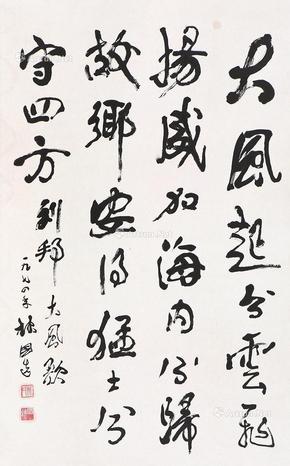 大風起兮雲飛
揚威加海內兮歸
故鄉安得猛士兮
守四方
刘邦 大風歌
一九年